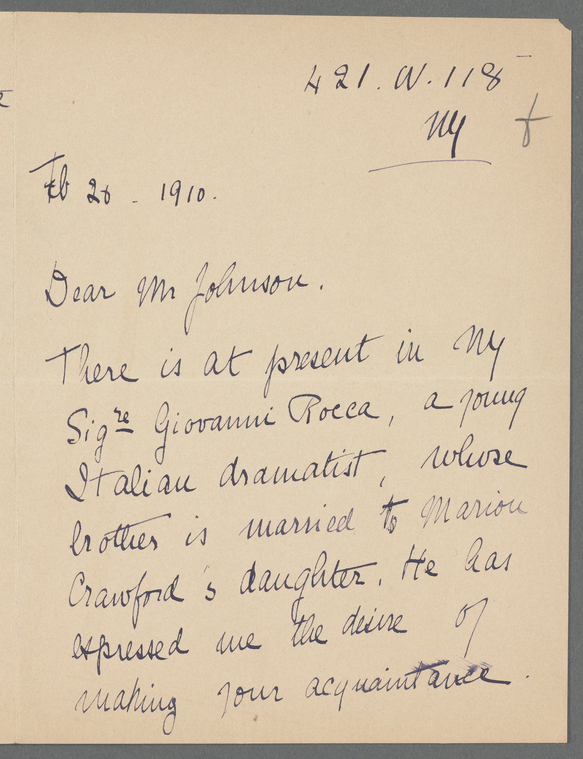 421. W. 118
NY
Feb 28 - 1910.
Dear Mr Johnson.
There is at present in NY
Sigre Giovanni Rocca, a young
Italian dramatist, whose
brother is married to Marion
Crawford's daughter. He has
expressed me the desire of
making your acquaintance.